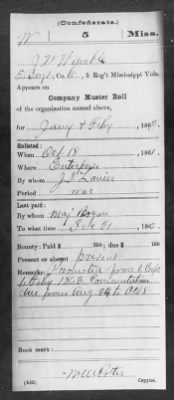 (Confederate.)
5 Miss.
5 Sergt, Co. 5 Reg't Mississippi Vols.
Appears on
Company Muster Roll
of the organization named above,
for Jany & Feby , 186
Enlisted:
When Oct 18 , 186
Where Enterprise
By whom J. Lanier
Period war
Last paid:
By whom Maj Bogan
To what time Dec 31 , 186
Bounty: Paid $ 100; due $ 100
Present or absent present
Remarks: Promoted from Corpl
Feby 1863 Commutation
due from Aug 24 to Oct 18
Book mark:
(642) Copyist.